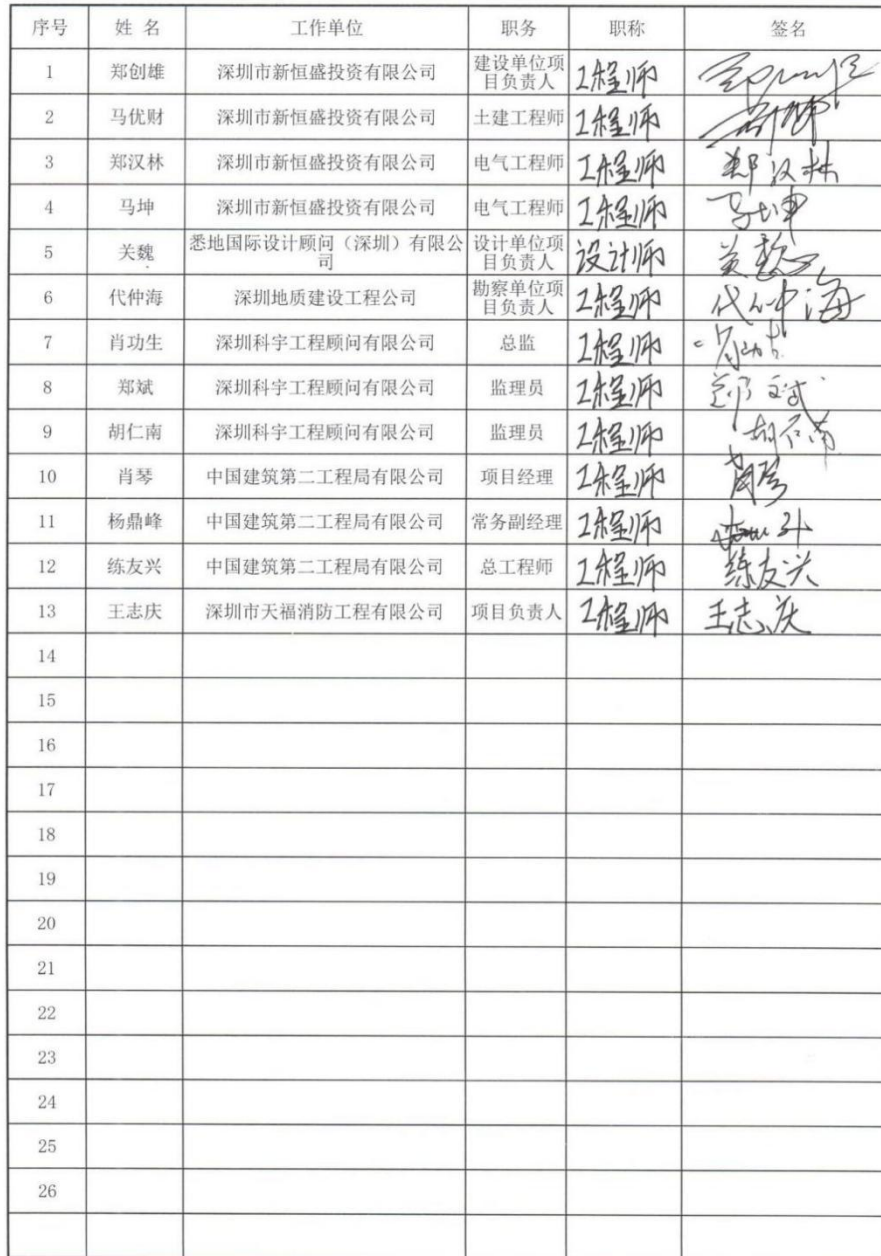 序号 姓 名 工作单位 职务 职称 签名
1 郑创雄 深圳市新恒盛投资有限公司 建设单位项目负责人 工程师
2 马优财 深圳市新恒盛投资有限公司 土建工程师 工程师
3 郑汉林 深圳市新恒盛投资有限公司 电气工程师 工程师 郑汉林
4 马坤 深圳市新恒盛投资有限公司 电气工程师 工程师 马坤
5 关魏 悉地国际设计顾问（深圳）有限公司 设计单位项目负责人 设计师
6 代仲海 深圳地质建设工程公司 勘察单位项目负责人 工程师 代仲海
7 肖功生 深圳科宇工程顾问有限公司 总监 工程师
8 郑斌 深圳科宇工程顾问有限公司 监理员 工程师 郑斌
9 胡仁南 深圳科宇工程顾问有限公司 监理员 工程师 胡仁南
10 肖琴 中国建筑第二工程局有限公司 项目经理 工程师 肖琴
11 杨鼎峰 中国建筑第二工程局有限公司 常务副经理 工程师
12 练友兴 中国建筑第二工程局有限公司 总工程师 工程师 练友兴
13 王志庆 深圳市天福消防工程有限公司 项目负责人 工程师 王志庆
14
15
16
17
18
19
20
21
22
23
24
25
26